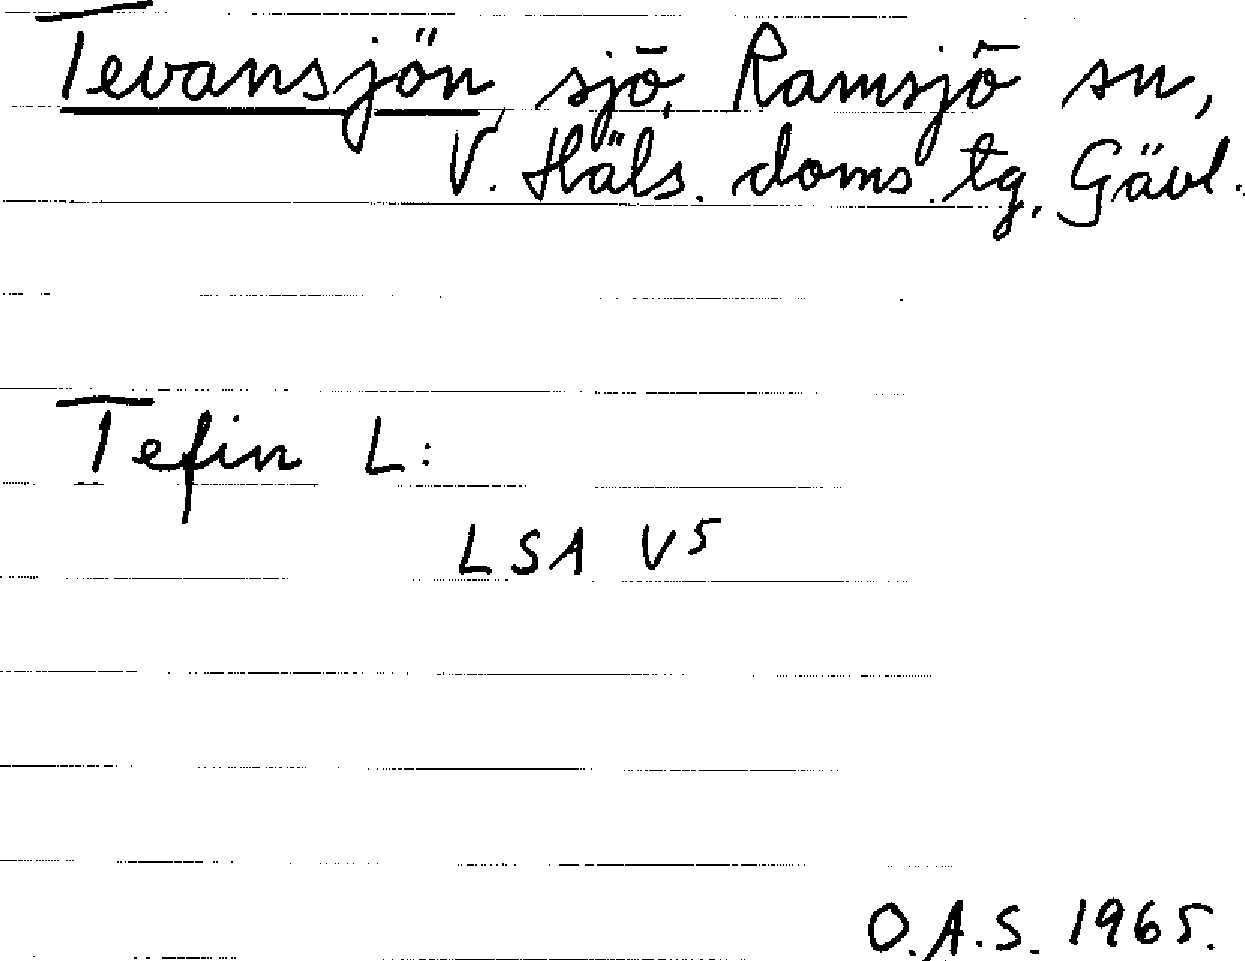 Tevansjön, sjö, Ramsjö sn,
V. Häls. doms. tg, Gävl.
Tefin L:
LSA V5
O.A.S. 1965.